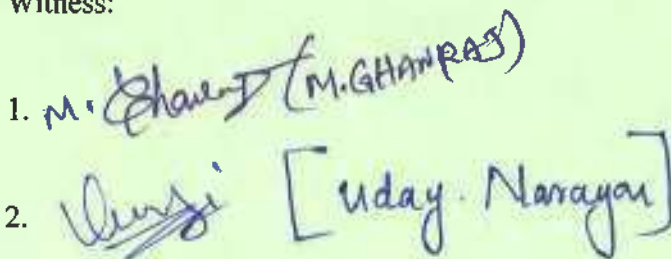 Witness:
1. M. (M.GHANRAJ)
2. [Uday. Narayan]